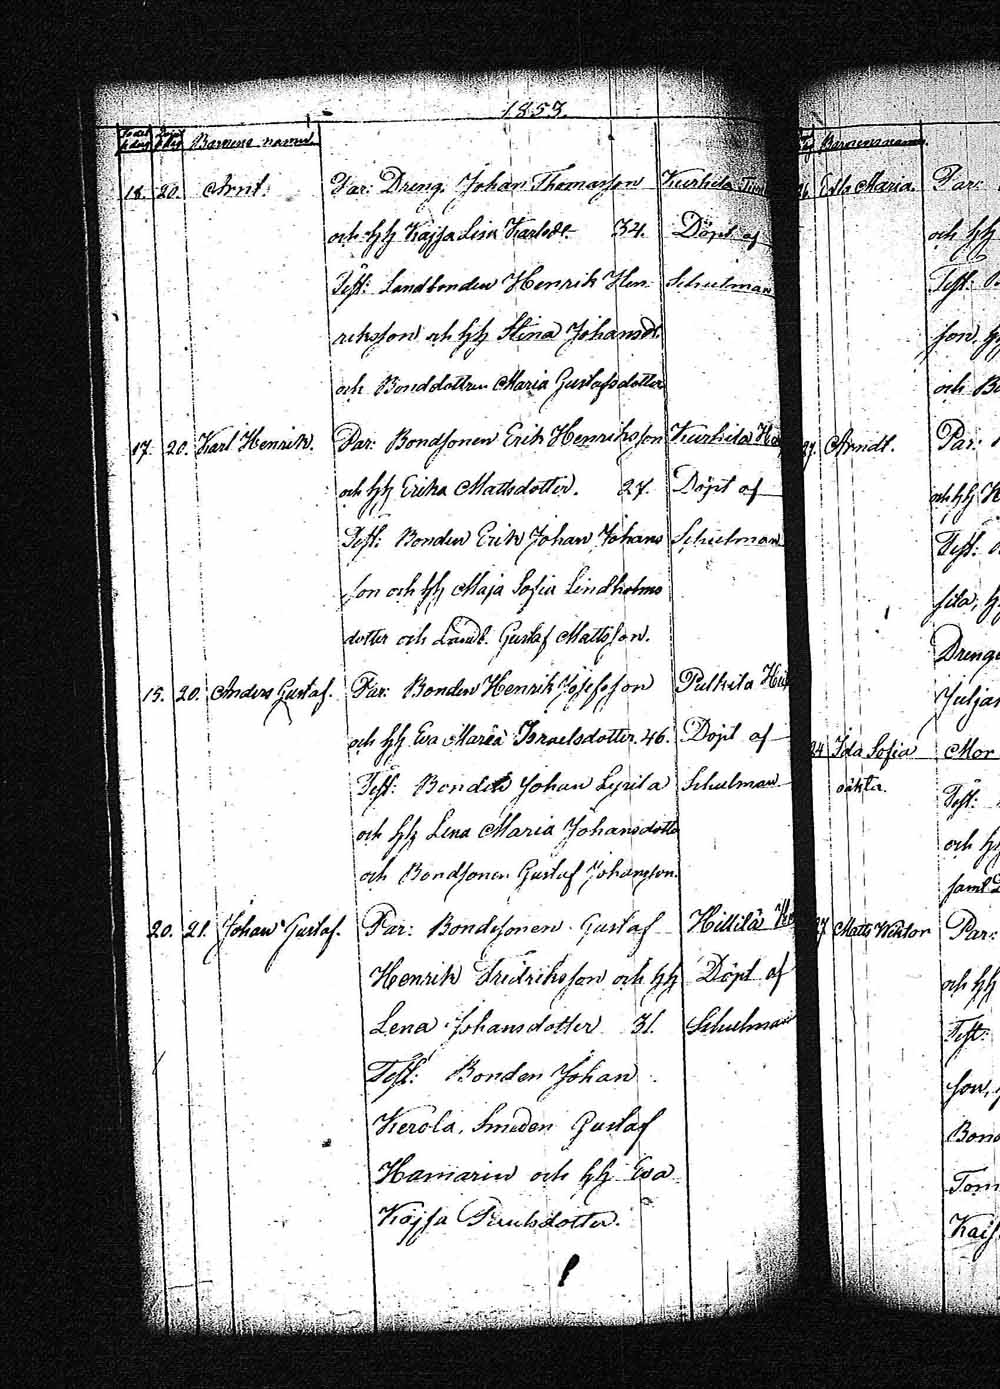 1853.
Barnens namn.
18. 20. Arvit. Par: Dreng. Johan Thomasson Kurkila
och hh Kajsa Lisa Karlsdr. 34. Döpt af
Test: Landbonden Henrik Hen- Schulman
riksson och hh Stina Johansdr.
och Bonddottren Maria Gustafsdotter
17. 20. Karl Henrik. Par: Bondsonen Erik Henriksson Kurkila
och hh Erika Mattsdotter. 27. Döpt af
Test: Bonden Erik Johan Johans Schulman
son och hh Maja Sofia Lindholms
dotter och Landb. Gustaf Mattsson.
15. 20. Anders Gustaf. Par: Bonden Henrik Josefsson Pulkila
och hh Eva Maria Israelsdotter. 46. Döpt af
Test: Bonden Johan Lyrila Schulman
och hh Lena Maria Johansdotter
och Bondsonen Gustaf Johansson.
20. 21. Johan Gustaf. Par: Bondsonen Gustaf Hillilä
Henrik Fredriksson och hh Döpt af
Lena Johansdotter 31. Schulman
Test: Bonden Johan
Kerola, Smeden Gustaf
Hamarin och hh Eva
Kajsa Paulsdotter.
Barnens namn.
Edla Maria. Par:
och hh
Test:
son, h
och Bo
27. Arndt. Par:
och hh K
Test:
sila, h
Drenge
Juljan
24 Ida Sofia Mor
oäkta. Test:
och hh
samt
27 Matts Wiktor Par:
och hh
Test:
son,
Bond
Tom
Kajs